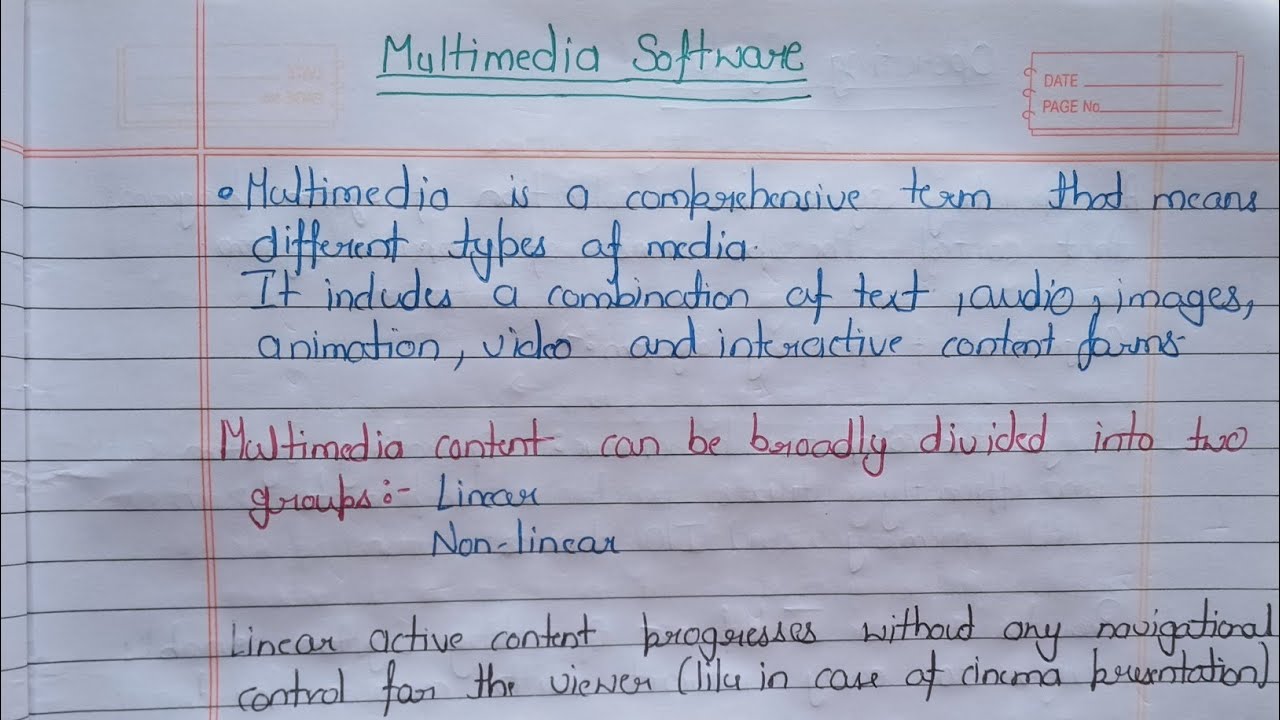 Multimedia Software
DATE
PAGE No.
• Multimedia is a comprehensive term that means
different types of media.
It includes a combination of text, audio, images,
animation, video and interactive content forms.
Multimedia content can be broadly divided into two
groups:- Linear
Non-linear
Linear active content progresses without any navigational
control for the viewer (like in case of cinema presentation)